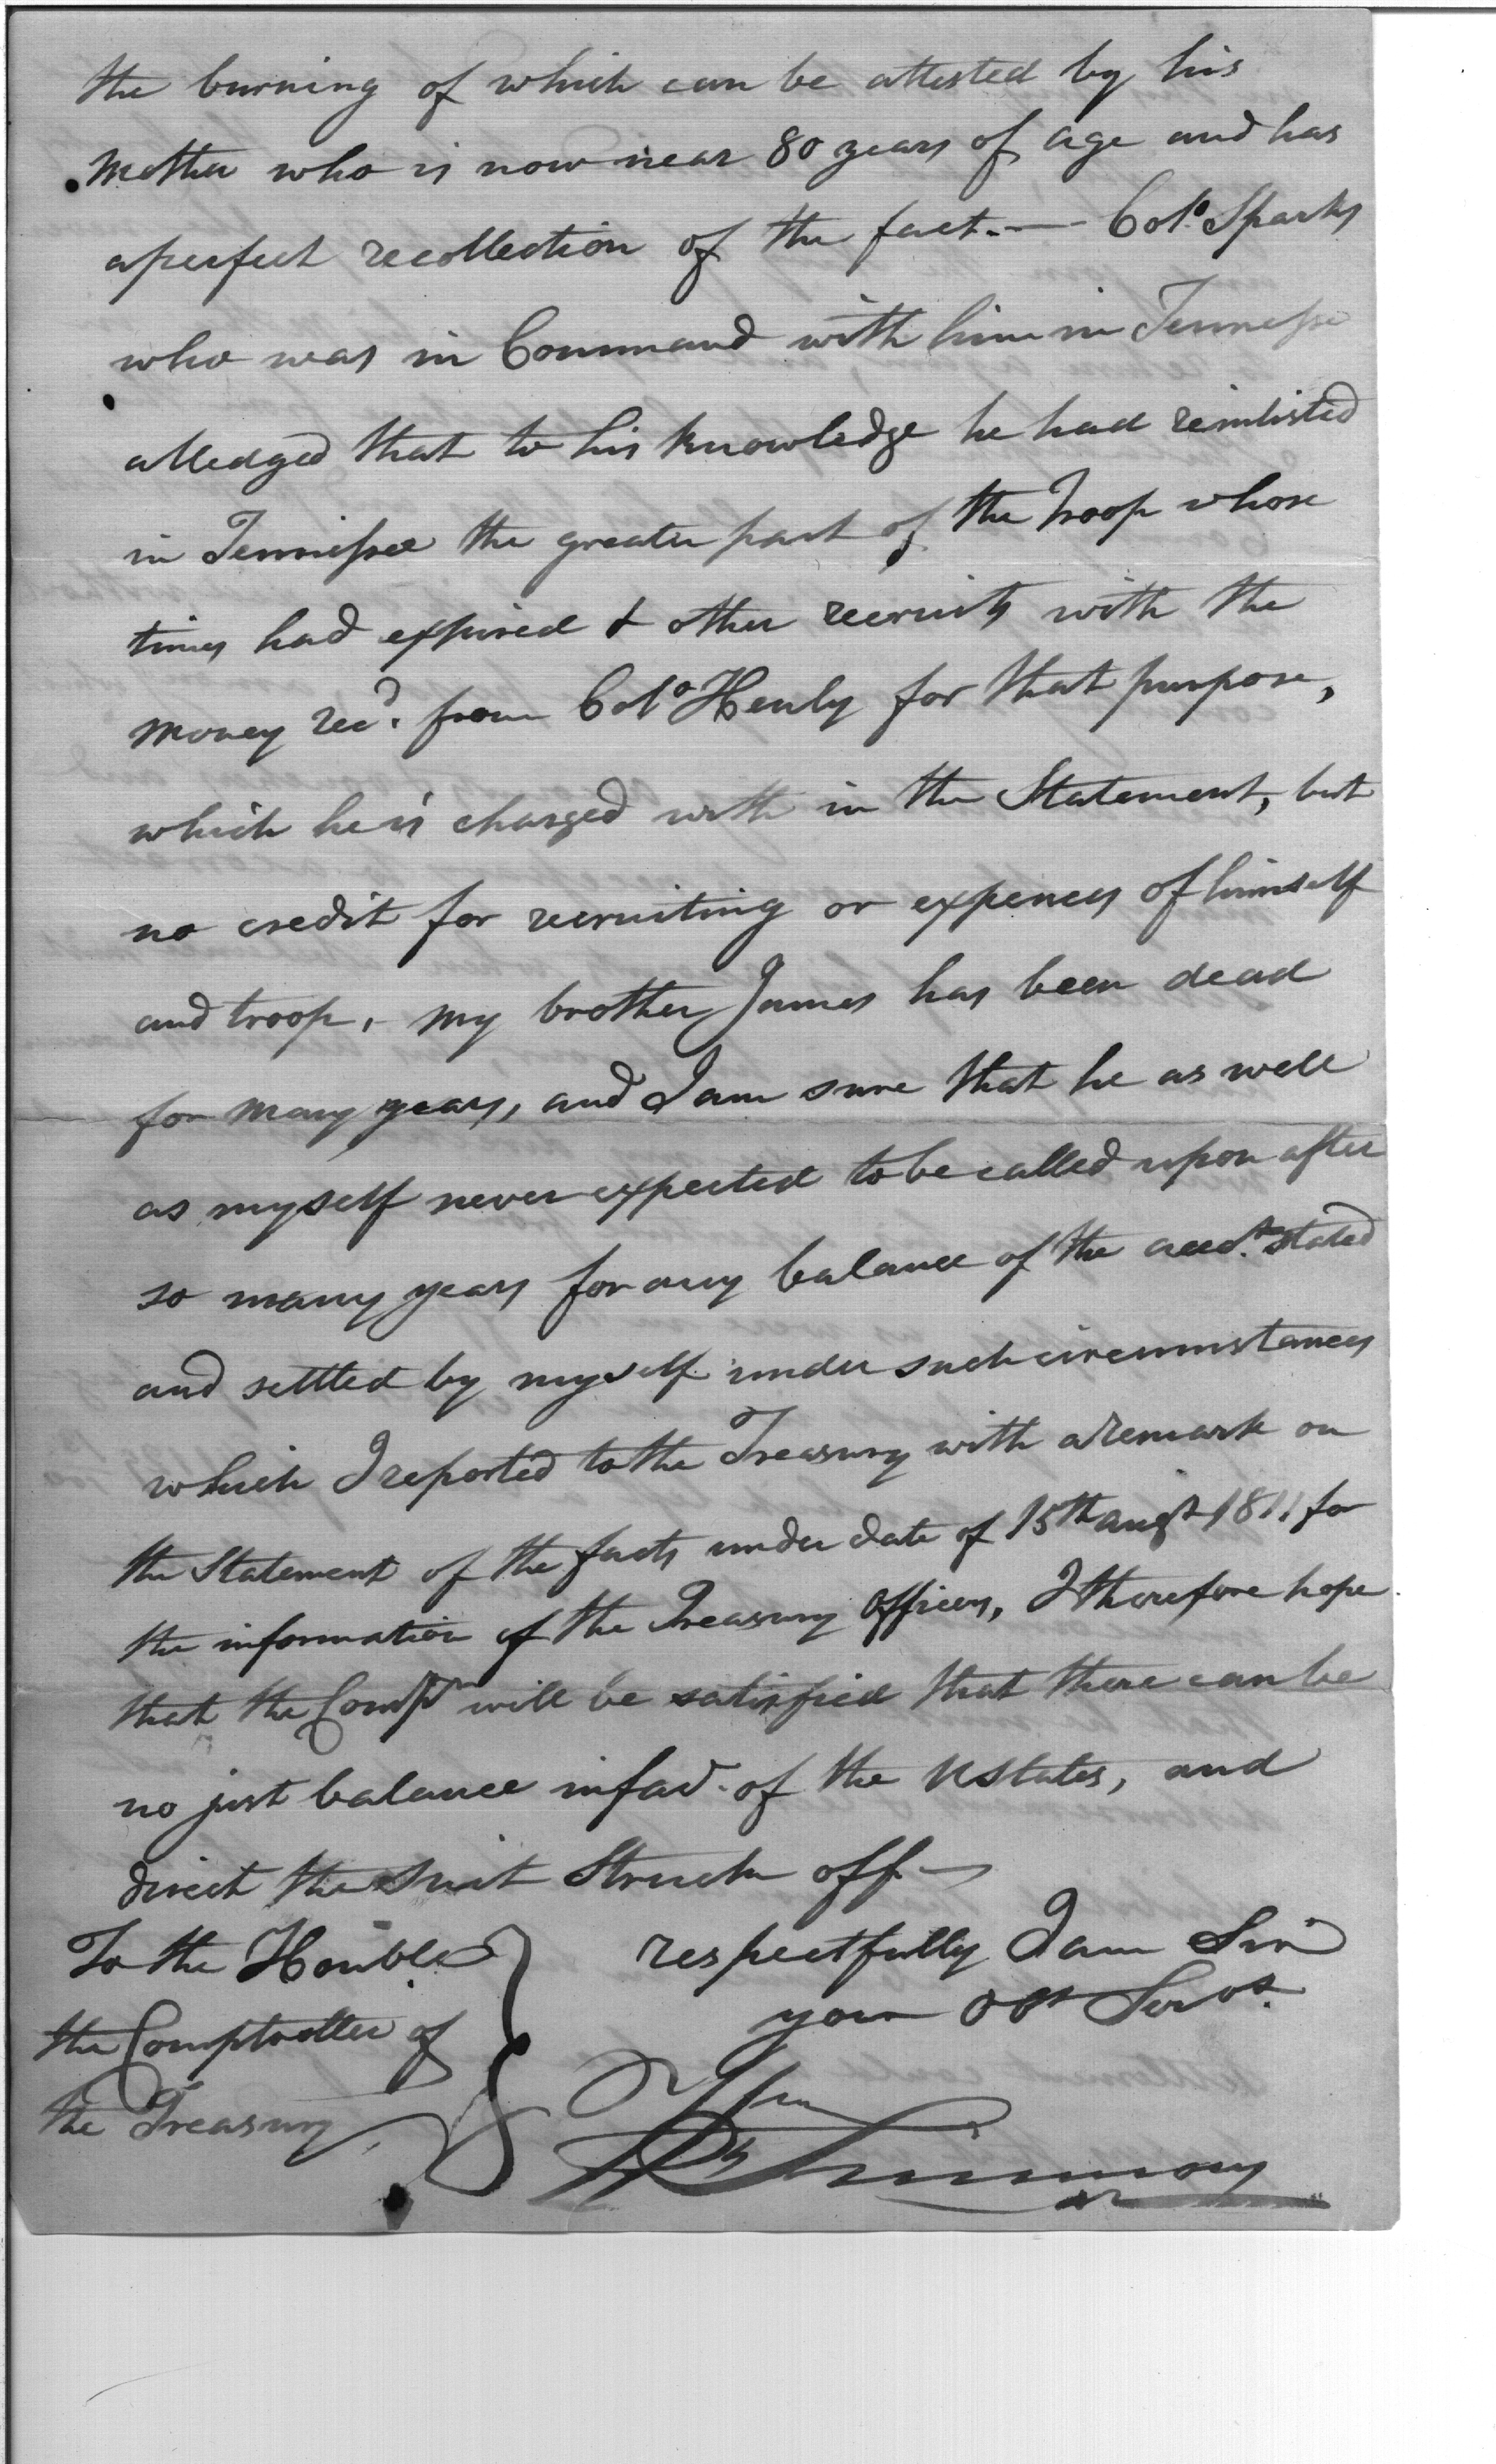 the burning of which can be attested by his
Mother who is now near 80 years of age and has
a perfect recollection of the fact. — Colo. Sparks
who was in Command with him in Tennessee
alledged that to his knowledge he had reinlisted
in Tennessee the greater part of the troop whose
times had expired & other recruits with the
money recd. from Colo Henly for that purpose,
which he is charged with in the Statement, but
no credit for recruiting or expences of himself
and troop, - my brother James has been dead
for many years, and I am sure that he as well
as myself never expected to be called upon after
so many years for any balance of the acct. stated
and settled by myself under such circumstances
which I reported to the Treasury with a remark on
the Statement of the facts under date of 15th augt 1811 for
the information of the Treasury officers, I therefore hope
that the Compr will be satisfied that there can be
no just balance in fav. of the UStates, and
direct the suit Struck off —
To the Honble respectfully I am Sir
the Comptroller of your Obt Servt.
the Treasury
Wm Simmons